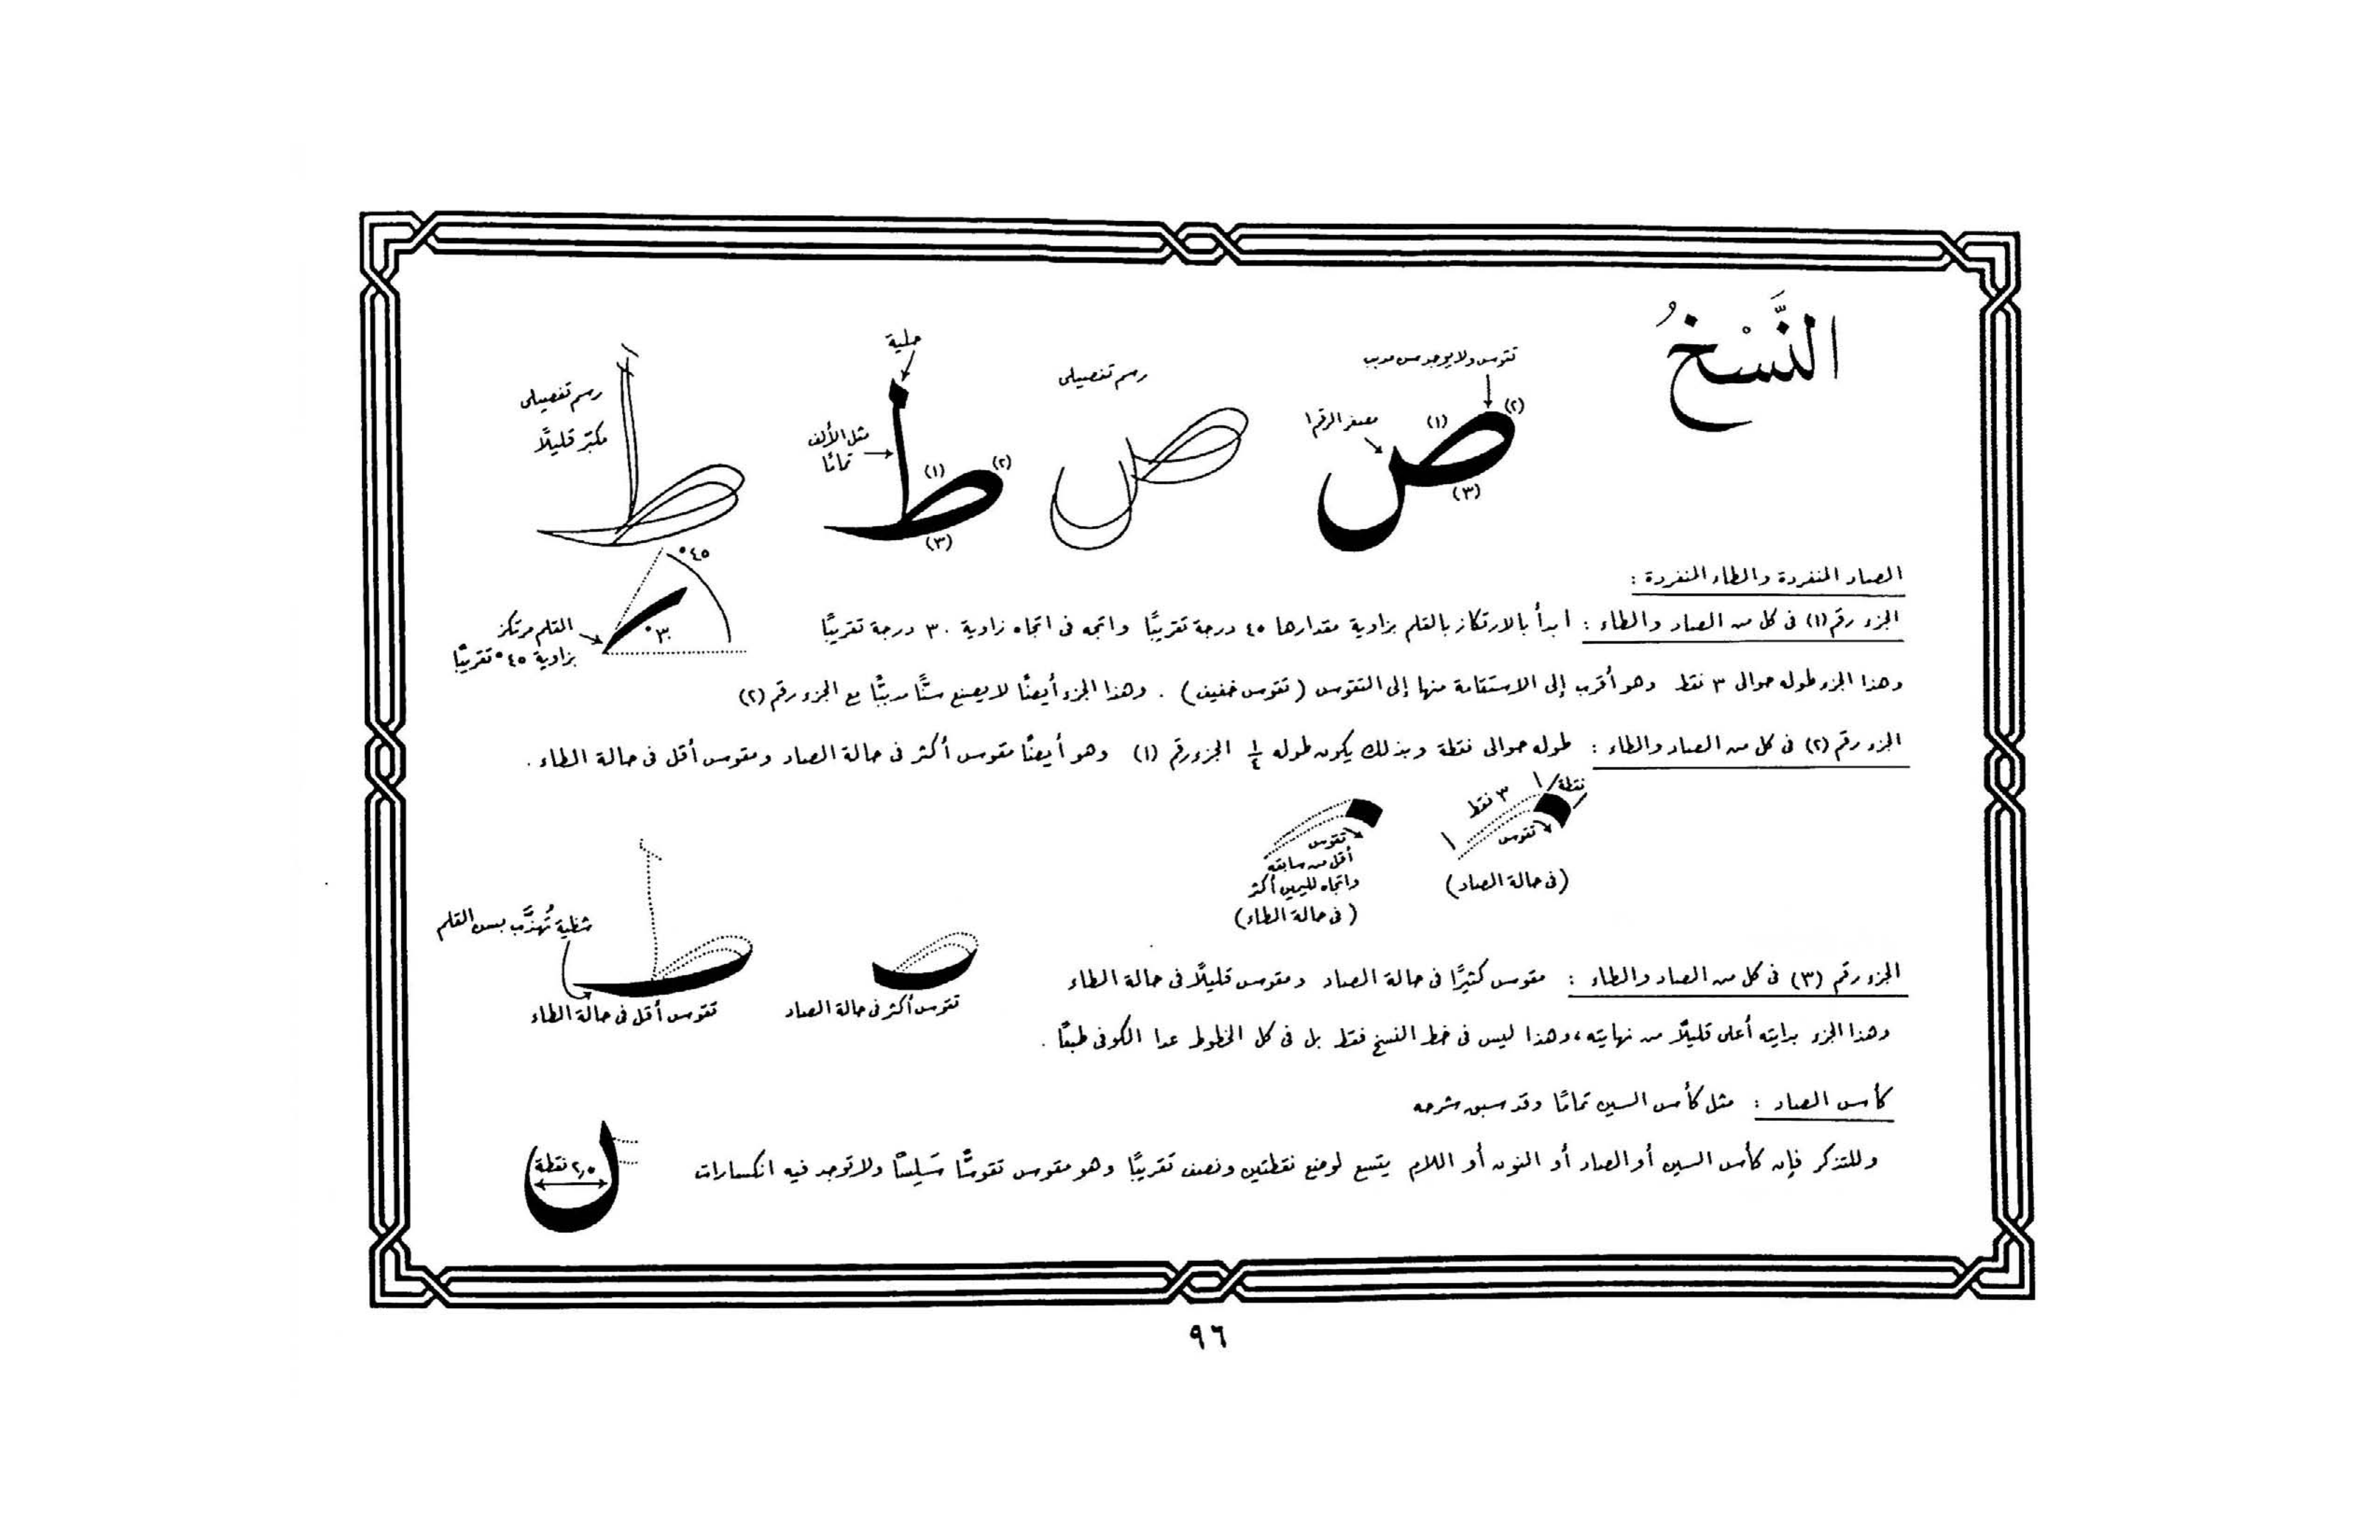 النَّسْخُ
تقوس ولا يوجد سن مدبب
(٢)
(١)
مصغر الرقم ١
(٣)
ص
رسم تفصيلى
ص
حلية
مثل الألف
تمامًا
(١)
(٢)
(٣)
ط
رسم تفصيلى
مكبّر قليلًا
ط
الصاد المنفردة والطاء المنفردة :
٤٥°
٣٠°
القلم مرتكز
بزاوية ٤٥° تقريبًا
الجزء رقم (١) فى كل من الصاد والطاء : ابدأ بالارتكاز بالقلم بزاوية مقدارها ٤٥ درجة تقريبًا واتجه فى اتجاه زاوية ٣٠ درجة تقريبًا
وهذا الجزء طوله حوالى ٣ نقط وهو أقرب إلى الاستقامة منها إلى التقوس (تقوس خفيف) . وهذا الجزء أيضًا لا يصنع سنًّا مدببًا مع الجزء رقم (٢)
الجزء رقم (٢) فى كل من الصاد والطاء : طوله حوالى نقطة وبذلك يكون طوله ١/٤ الجزء رقم (١) وهو أيضًا مقوس أكثر فى حالة الصاد ومقوس أقل فى حالة الطاء .
نقطة
٣ نقط
تقوس
(فى حالة الصاد)
تقوس
أقل من سابقه
واتجاه لليمين أكثر
(فى حالة الطاء)
شظية تُهذَّب بسن القلم
تقوس أكثر فى حالة الصاد
تقوس أقل فى حالة الطاء
الجزء رقم (٣) فى كل من الصاد والطاء : مقوس كثيرًا فى حالة الصاد ومقوس قليلًا فى حالة الطاء
وهذا الجزء بدايته أعلى قليلًا من نهايته، وهذا ليس فى خط النسخ فقط بل فى كل الخطوط عدا الكوفى طبعًا .
كأس الصاد : مثل كأس السين تمامًا وقد سبق شرحه
وللتذكر فإن كأس السين أو الصاد أو النون أو اللام يتسع لوضع نقطتين ونصف تقريبًا وهو مقوس تقوسًا سَلِسًا ولا توجد فيه انكسارات
٢,٥ نقطة
٩٦